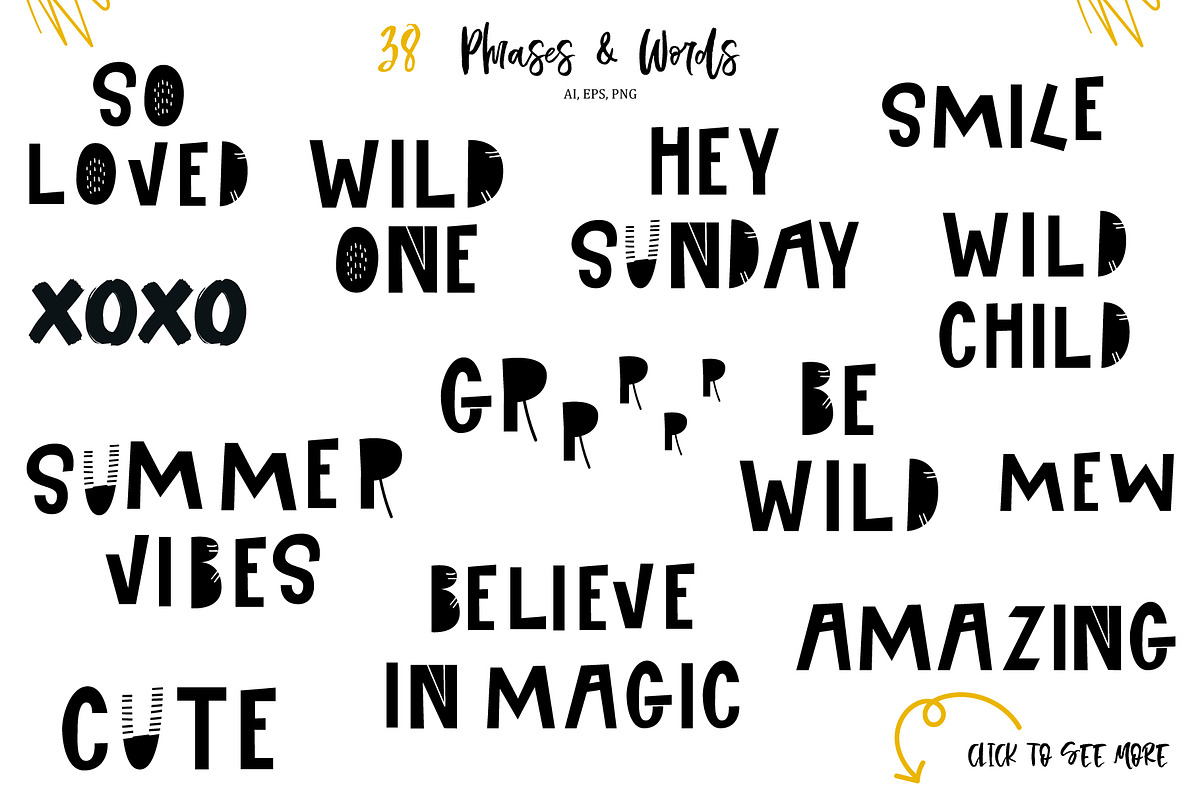 38 Phrases & Words
AI, EPS, PNG
SO
LOVED
WILD
ONE
HEY
SUNDAY
SMILE
WILD
CHILD
XOXO
GRPPPP
BE
WILD
MEW
SUMMER
VIBES
BELIEVE
IN MAGIC
AMAZING
CUTE
CLICK TO SEE MORE